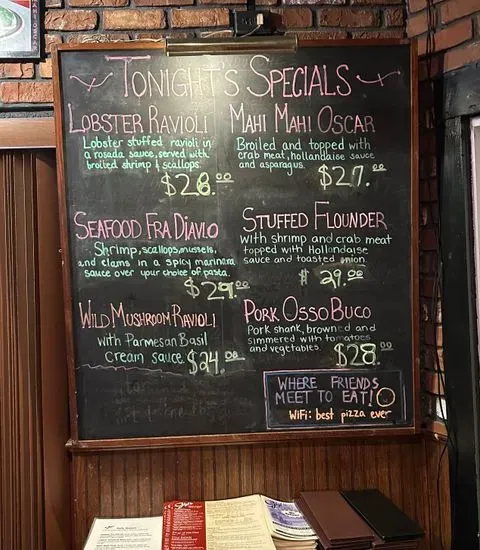 TONIGHT'S SPECIALS
LOBSTER RAVIOLI
Lobster stuffed ravioli in
a rosada sauce, served with
broiled shrimp & scallops.
$28.00
MAHI MAHI OSCAR
Broiled and topped with
crab meat, hollandaise sauce
and asparagus.
$27.00
SEAFOOD FRA DIAVLO
Shrimp, scallops, mussels,
and clams in a spicy marinara
sauce over your choice of pasta.
$29.00
STUFFED FLOUNDER
with shrimp and crab meat
topped with Hollondaise
sauce and toasted onion.
$29.00
WILD MUSHROOM RAVIOLI
with Parmesan Basil
Cream sauce.
$24.00
PORK OSSO BUCO
Pork shank, browned and
simmered with tomatoes
and vegetables.
$28.00
WHERE FRIENDS
MEET TO EAT!
WiFi: best pizza ever